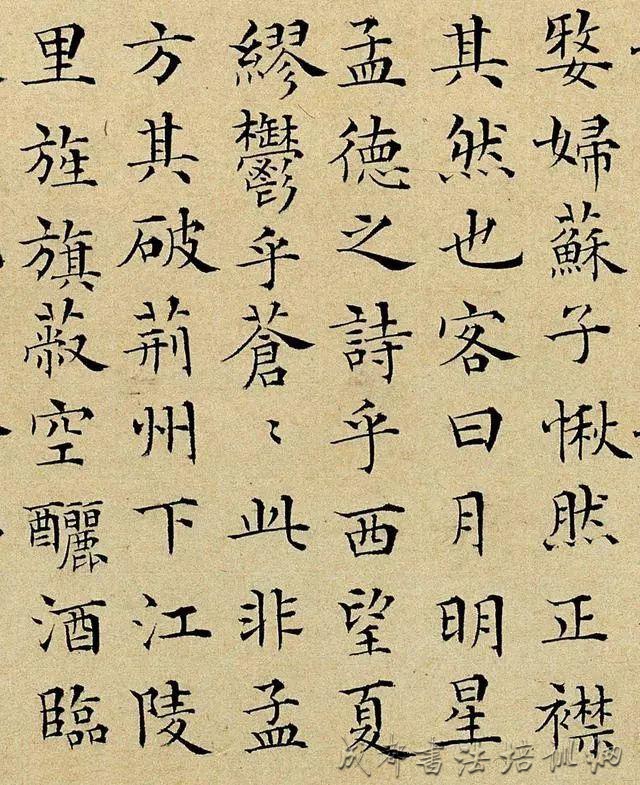 嫠婦蘇子愀然正襟
其然也客曰月明星
孟德之詩乎西望夏
繆鬱乎蒼〻此非孟
方其破荊州下江陵
里旌旗蔽空釃酒臨
成都書法培训网